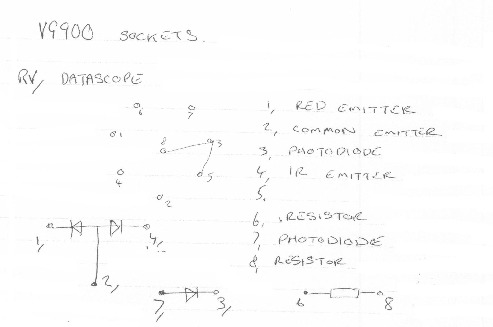 V9900 SOCKETS.
RV, DATASCOPE
6 7
1
8 3
4 5
2
1, RED EMITTER
2, COMMON EMITTER
3, PHOTODIODE
4, IR EMITTER
5.
6, RESISTOR
7, PHOTODIODE
8, RESISTOR
1, 4,
2,
7, 3,
6 8